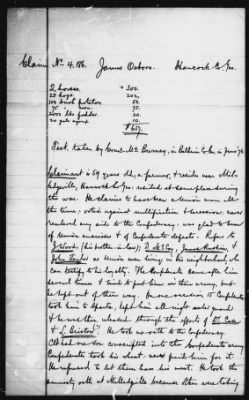 Claim No. 4,186. James Osborn. Hancock Co. Geo.
2 horses $ 300.
22 hogs 202.
100 bush potatoes 50.
75 " corn 75.
2000 lbs fodder 20.
20 gals syrup 10.
$657.
Test. taken by Comr. Mc Burney, in Baldwin Co. in June '76
Claimant is 59 years old, a farmer, & resides near Milledgeville, Hancock Co. Geo: resided at same place during
the war. He claims to have been a Union man all
the time: voted against nullification & secession: never
rendered any aid to the Confederacy: was glad to hear
of Union successes & of Confederate defeats. Refers to
J. Wood (his brother in law),
John
as Union men living in his neighborhood who
can testify to his loyalty. The Confederates came after him
several times & tried to put him in their army, but
he kept out of their way. On one occasion the Confederates
took him to Sparta, kept him all night under guard
& he was then released through the efforts of
& L. Bristow. He took no oath to the Confederacy.
in the Confederate army
Confederates took his wheat: paid him for it.
He refused to let them have his meat. He took the
amnesty oath at Milledgeville because others were taking